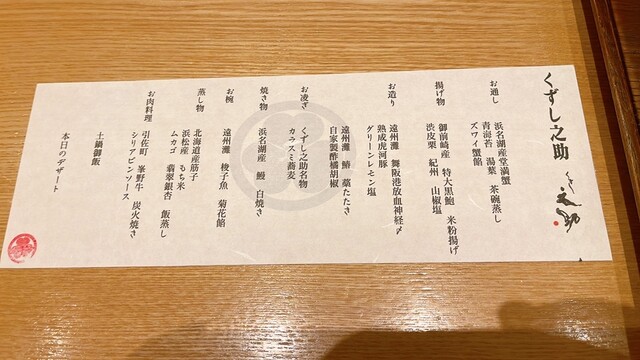 くずし之助
くずし之助
お通し
浜名湖産堂満蟹 茶碗蒸し
青海苔 湯葉
ズワイ蟹餡
揚げ物
御前崎産 特大黒鮑 米粉揚げ
渋皮栗 紀州 山椒塩
お造り
遠州灘 舞阪港放血神経〆
熟成虎河豚
グリーンレモン塩
遠州灘 鰆 藁たたき
自家製酢橘胡椒
お凌ぎ
くずし之助名物
カラスミ蕎麦
焼き物
浜名湖産 鰻 白焼き
お椀
遠州灘 梭子魚 菊花餡
蒸し物
北海道産筋子
浜松産 もち米
ムカゴ 翡翠銀杏 飯蒸し
お肉料理
引佐町 峯野牛 炭火焼き
シリアビンソース
土鍋御飯
本日のデザート